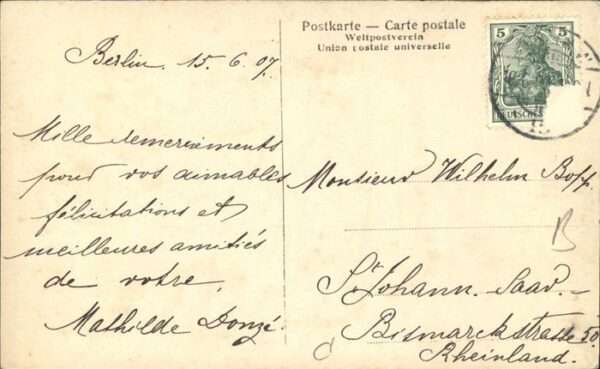 Postkarte — Carte postale
Weltpostverein
Union postale universelle
5 5
DEUTSCHES
Berlin. 15. 6. 07.
Mille remerciements
pour vos aimables
félicitations et
meilleures amitiés
de votre
Mathilde Donzé.
Monsieur Wilhelm Bopp
St Johann - Saar. -
Bismarckstrasse 50.
Rheinland.
B